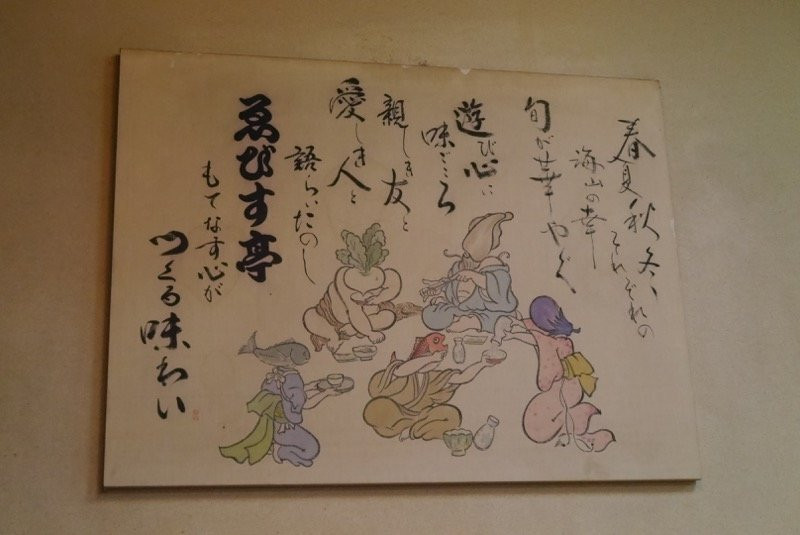 春夏秋冬、それぞれの
海山の幸
旬が幸やぐ、
遊び心に
味ごころ
親しき友と
愛しき人と
語らいたのし
ゑびす亭
もてなす心が
つくる味わい